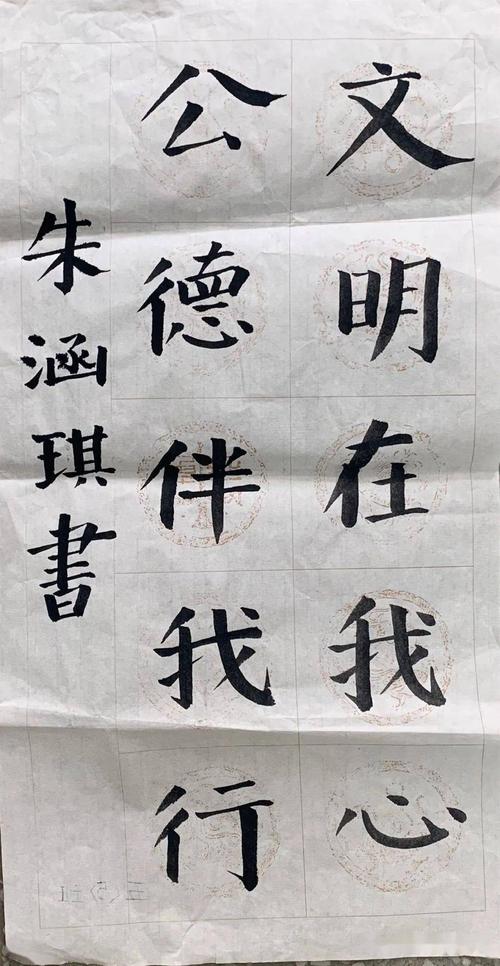 文明在我心
公德伴我行
朱涵琪書